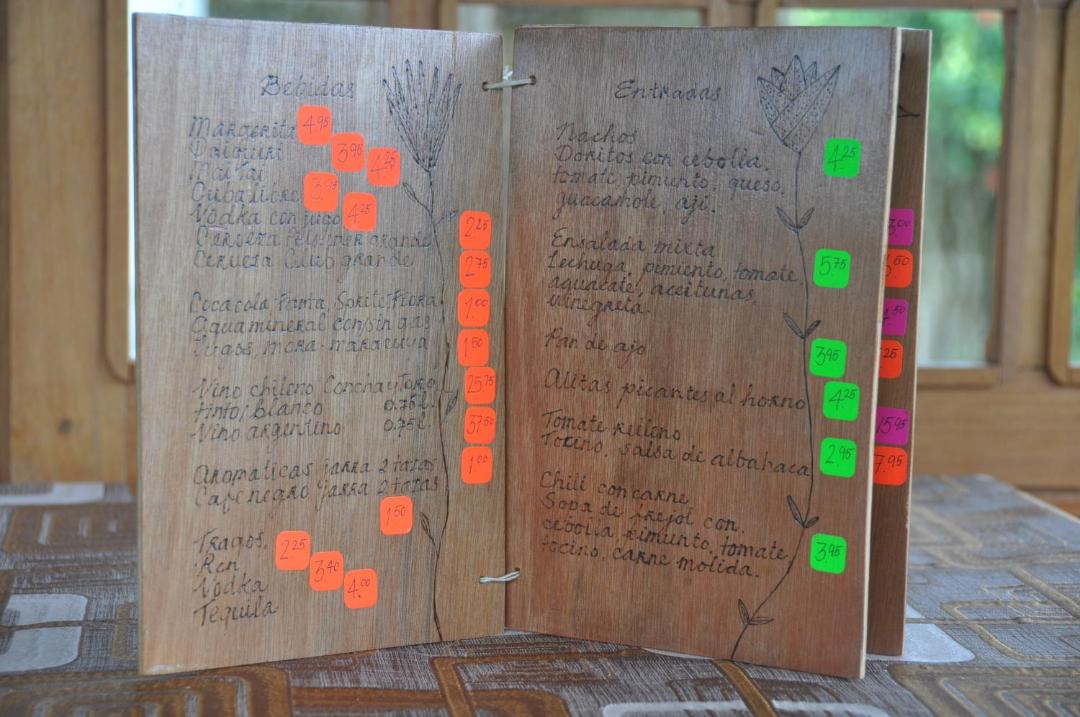 Bebidas
Margerita 4.95
Daiquiri 3.95
Mai Tai 4.25
Cuba libre 3.95
Vodka con jugo 4.25
Cerveza Pilsener grande 2.25
Cerveza Club grande 2.75
Cocacola, Fanta, Sprite, Fiora 1.00
Agua mineral con/sin gas
Jugos, mora maracuya 1.50
Vino chileno Concha y Toro 25.75
tinto/blanco 0.75 l.
Vino argentino 0.75 l. 37.50
Aromaticas jarra 2 tazas 1.00
Cafe negro jarra 2 tazas 1.50
Tragos.
Ron 2.25
Vodka 3.40
Tequila 4.00
Entradas
Nachos
Doritos con cebolla, 4.25
tomate pimiento, queso,
guacamole, ají.
Ensalada mixta
Lechuga, pimiento, tomate, 5.75
aguacate, aceitunas,
vinegreta.
Pan de ajo 3.95
Alitas picantes al horno 4.25
Tomate relleno
Tocino, salsa de albahaca 2.95
Chili con carne
Sopa de frejol con
cebolla, pimiento, tomate 3.95
tocino, carne molida.
3.00
.50
.50
.25
15.95
7.95